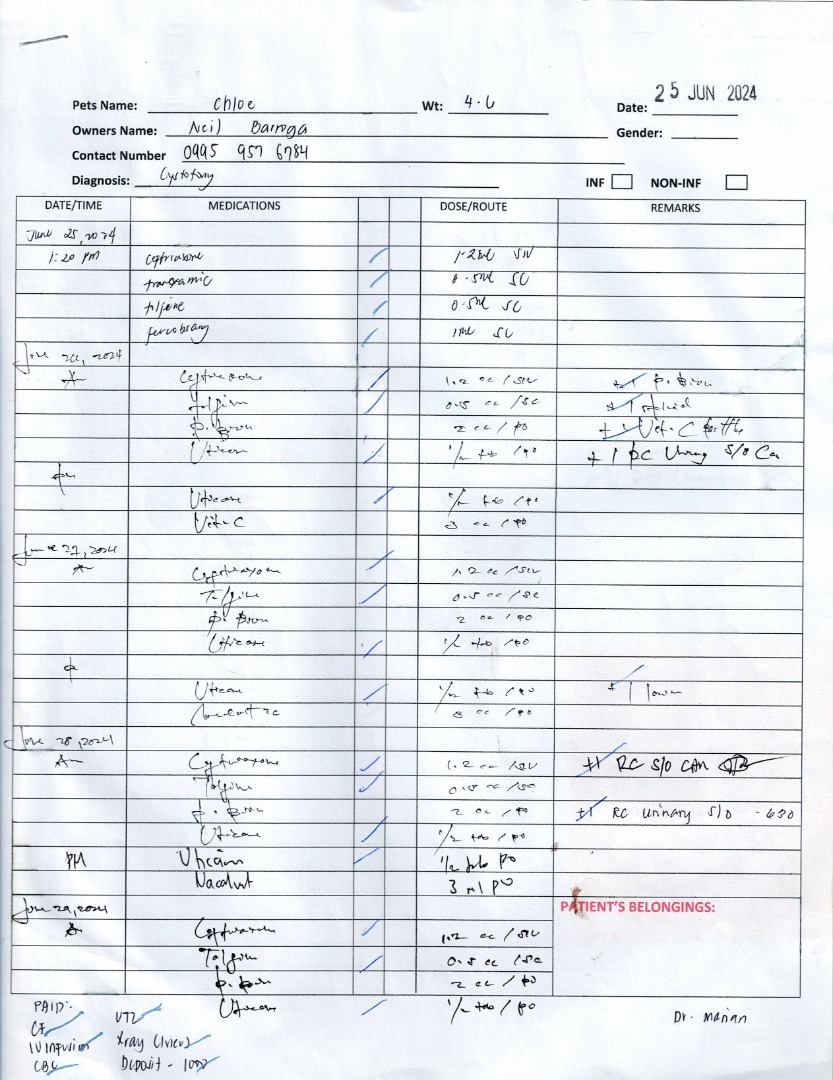 25 JUN 2024
Pets Name: Chloe Wt: 4.6 Date:
Owners Name: Neil Barroga Gender:
Contact Number 0995 957 6784
Diagnosis: Cystotomy INF NON-INF
DATE/TIME MEDICATIONS DOSE/ROUTE REMARKS
June 25, 2024
1:20 PM ceftriaxone 1.2ml SIV
tranexamic 0.5ml SC
tolfine 0.5ml SC
1ml SC
June 26, 2024
A Ceftriaxone 1.2 cc / SIV
Tolfine 0.5 cc / SC + 1
2 cc / PO + 1 Vet-C bottle
Uticare 1/2 tab / PO + 1 RC Urinary S/O Can
pm
Uticare 1/2 tab / PO
Vet-C 3 cc / PO
June 27, 2024
A Ceftriaxone 1.2 cc / SIV
Tolfine 0.5 cc / SC
2 cc / PO
Uticare 1/2 tab / PO
Uticare 1/2 tab / PO + 1
3 cc / PO
June 28, 2024
A Ceftriaxone 1.2 cc / SIV +1 RC S/O CAN
Tolfine 0.5 cc / SC
2 cc / PO +1 RC Urinary S/O - 630
Uticare 1/2 tab / PO
PM Uticare 1/2 tab PO
3 ml PO
June 29, 2024 PATIENT'S BELONGINGS:
A Ceftriaxone 1.2 cc / SIV
Tolfine 0.5 cc / SC
2 cc / PO
Uticare 1/2 tab / PO
PAID: UTZ Dr. Marian
CF Xray (1view)
IV infusion Deposit - 1000
CBC